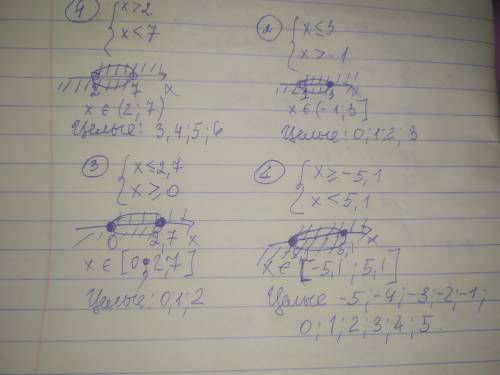 1) { x > 2
x < 7
2 7 x
x ∈ (2; 7)
Целые: 3, 4; 5; 6
2) { x ≤ 3
x > -1
-1 3 x
x ∈ (-1; 3]
Целые: 0; 1; 2; 3
3) { x ≤ 2,7
x ≥ 0
0 2,7 x
x ∈ [0; 2,7]
Целые: 0, 1; 2
4) { x ≥ -5,1
x < 5,1
-5,1 5,1 x
x ∈ [-5,1; 5,1]
Целые -5; -4; -3; -2; -1;
0; 1; 2; 3; 4; 5.